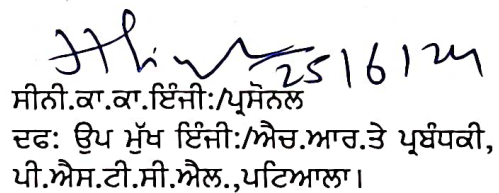 25/6/24
ਸੀਨੀ.ਕਾ.ਕਾ.ਇੰਜੀ:/ਪ੍ਰਸੋਨਲ
ਦਫ: ਉਪ ਮੁੱਖ ਇੰਜੀ:/ਐਚ.ਆਰ.ਤੇ ਪ੍ਰਬੰਧਕੀ,
ਪੀ.ਐਸ.ਟੀ.ਸੀ.ਐਲ.,ਪਟਿਆਲਾ।